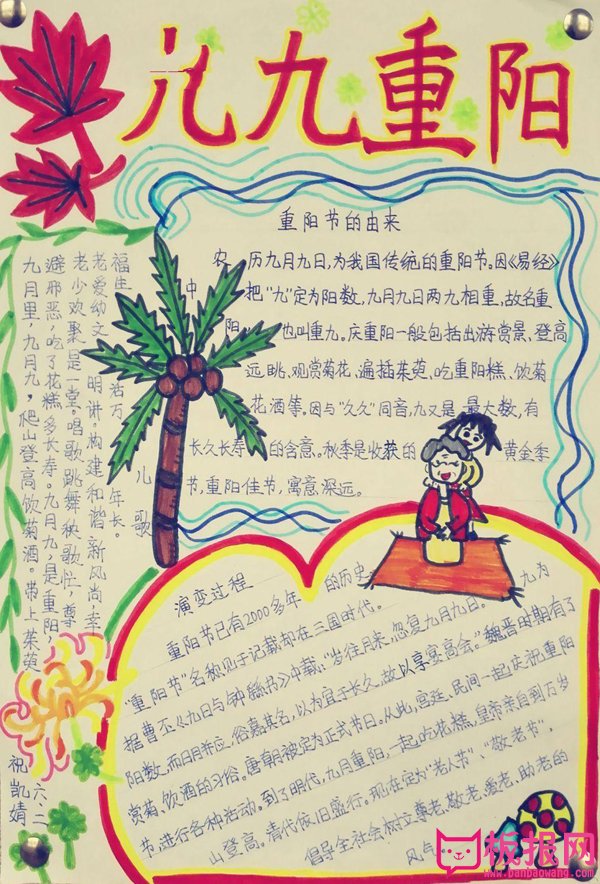 九九重阳
重阳节的由来
农历九月九日,为我国传统的重阳节。因《易经》
中把“九”定为阳数,九月九日两九相重,故名重
阳,也叫重九。庆重阳一般包括出游赏景、登高
远眺、观赏菊花、遍插茱萸、吃重阳糕、饮菊
花酒等。因与“久久”同音,九又是最大数,有
长久长寿的含意。秋季是收获的黄金季
节,重阳佳节,寓意深远。
儿歌
九月里,九月九,爬山登高饮菊酒。带上茱萸
避邪恶,吃了花糕多长寿。九月九,是重阳,
老少欢聚是一堂。唱歌跳舞秧歌忙,尊
老爱幼文明讲。构建和谐新风尚,幸
福生活万年长。
演变过程
重阳节已有2000多年的历史
“重阳节”名称见于记载却在三国时代。
据曹丕《九日与钟繇书》中载:“岁往月来,忽复九月九日。九为
阳数,而日月并应,俗嘉其名,以为宜于长久,故以享宴高会。”魏晋时期有了
赏菊、饮酒的习俗。唐朝被定为正式节日。从此,宫廷、民间一起庆祝重阳
节,进行各种活动。到了明代,九月重阳,一起吃花糕,皇帝亲自到万岁
山登高。清代依旧盛行。现在定为“老人节”、“敬老节”,
倡导全社会树立尊老、敬老、爱老、助老的
风气
六.二
祝凯婧
板报网
www.banbaowang.com